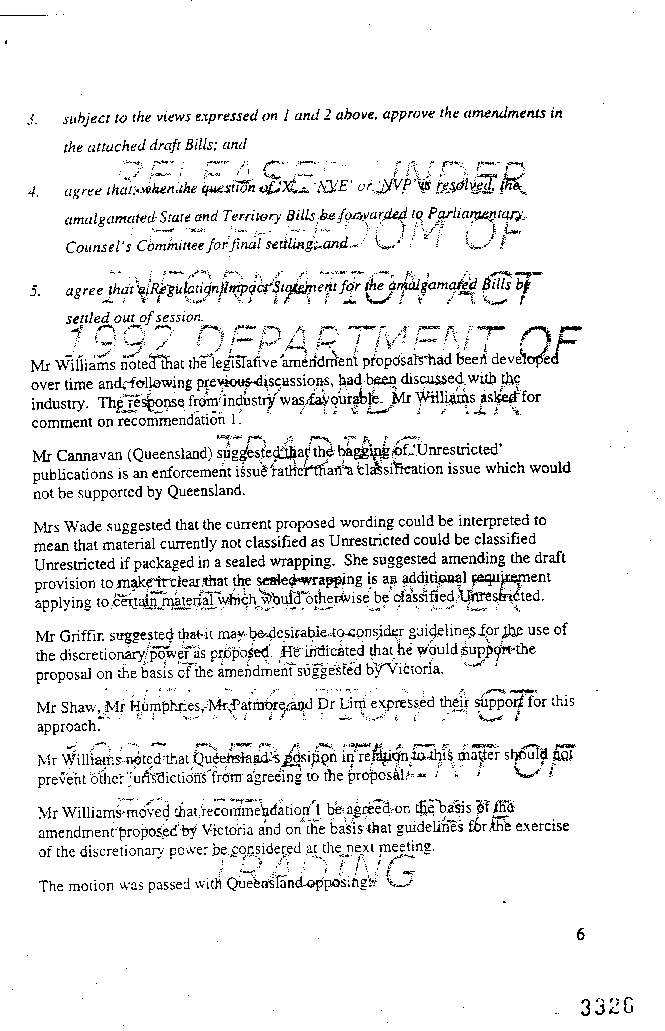 3. subject to the views expressed on 1 and 2 above, approve the amendments in
the attached draft Bills; and
4. agree that when the question of 'X', 'NVE' or 'NVP' is resolved, the
amalgamated State and Territory Bills be forwarded to Parliamentary
Counsel's Committee for final settling; and
5. agree that a Regulation Impact Statement for the amalgamated Bills be
settled out of session.
Mr Williams noted that the legislative amendment proposals had been developed
over time and, following previous discussions, had been discussed with the
industry. The response from industry was favourable. Mr Williams asked for
comment on recommendation 1.
Mr Cannavan (Queensland) suggested that the bagging of 'Unrestricted'
publications is an enforcement issue rather than a classification issue which would
not be supported by Queensland.
Mrs Wade suggested that the current proposed wording could be interpreted to
mean that material currently not classified as Unrestricted could be classified
Unrestricted if packaged in a sealed wrapping. She suggested amending the draft
provision to make it clear that the sealed wrapping is an additional requirement
applying to certain material which would otherwise be classified Unrestricted.
Mr Griffin suggested that it may be desirable to consider guidelines for the use of
the discretionary power as proposed. He indicated that he would support the
proposal on the basis of the amendment suggested by Victoria.
Mr Shaw, Mr Humphries, Mr Patmore and Dr Lim expressed their support for this
approach.
Mr Williams noted that Queensland's position in relation to this matter should not
prevent other jurisdictions from agreeing to the proposal.
Mr Williams moved that recommendation 1 be agreed on the basis of the
amendment proposed by Victoria and on the basis that guidelines for the exercise
of the discretionary power be considered at the next meeting.
The motion was passed with Queensland opposing.
RELEASED UNDER
FREEDOM OF
INFORMATION ACT
1992 DEPARTMENT OF
TRADING
TRADING
6
3326